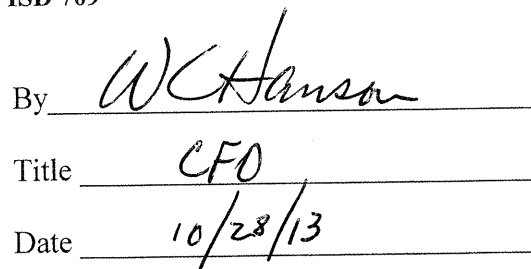 ISD 709
By WCHanson
Title CFO
Date 10/28/13